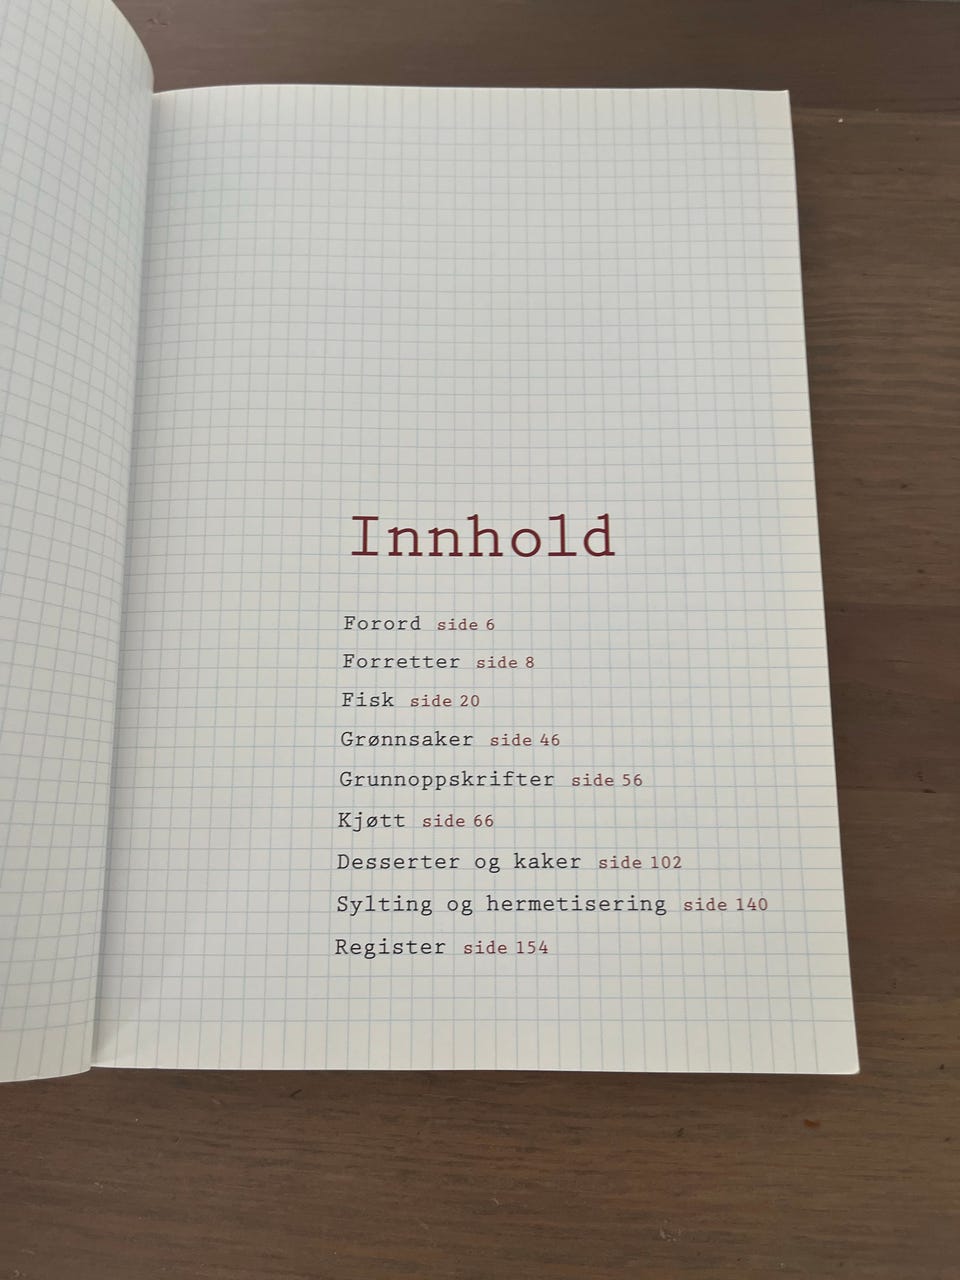 Innhold
Forord side 6
Forretter side 8
Fisk side 20
Grønnsaker side 46
Grunnoppskrifter side 56
Kjøtt side 66
Desserter og kaker side 102
Sylting og hermetisering side 140
Register side 154